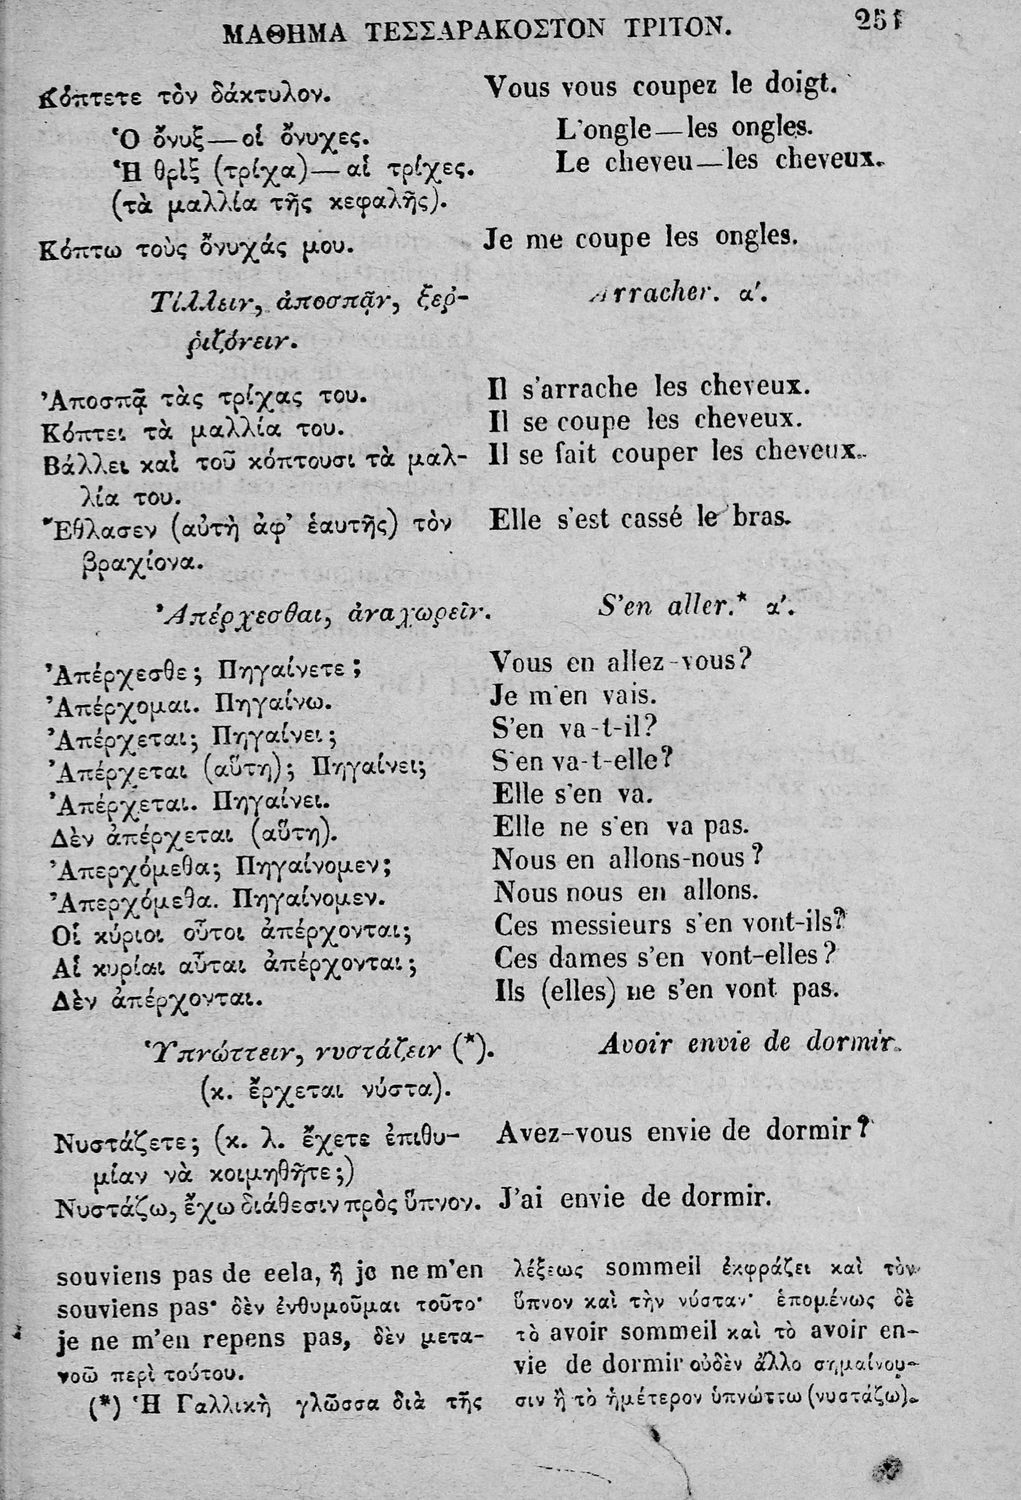 ΜΑΘΗΜΑ ΤΕΣΣΑΡΑΚΟΣΤΟΝ ΤΡΙΤΟΝ. 251
Κόπτετε τὸν δάκτυλον. Vous vous coupez le doigt.
Ὁ ὄνυξ—οἱ ὄνυχες. L'ongle—les ongles.
Ἡ θρὶξ (τρίχα)—αἱ τρίχες. Le cheveu—les cheveux.
(τὰ μαλλία τῆς κεφαλῆς).
Κόπτω τοὺς ὄνυχάς μου. Je me coupe les ongles.
Τίλλειν, ἀποσπᾷν, ξεῤ- Arracher. α'.
ῥιζόνειν.
Ἀποσπᾷ τὰς τρίχας του. Il s'arrache les cheveux.
Κόπτει τὰ μαλλία του. Il se coupe les cheveux.
Βάλλει καὶ τοῦ κόπτουσι τὰ μαλ- Il se fait couper les cheveux.
λία του.
Ἔθλασεν (αὐτὴ ἀφ' ἑαυτῆς) τὸν Elle s'est cassé le bras.
βραχίονα.
Ἀπέρχεσθαι, ἀναχωρεῖν. S'en aller.* α'.
Ἀπέρχεσθε; Πηγαίνετε; Vous en allez-vous?
Ἀπέρχομαι. Πηγαίνω. Je m'en vais.
Ἀπέρχεται; Πηγαίνει; S'en va-t-il?
Ἀπέρχεται (αὕτη); Πηγαίνει; S'en va-t-elle?
Ἀπέρχεται. Πηγαίνει. Elle s'en va.
Δὲν ἀπέρχεται (αὕτη). Elle ne s'en va pas.
Ἀπερχόμεθα; Πηγαίνομεν; Nous en allons-nous?
Ἀπερχόμεθα. Πηγαίνομεν. Nous nous en allons.
Οἱ κύριοι οὗτοι ἀπέρχονται; Ces messieurs s'en vont-ils?
Αἱ κυρίαι αὗται ἀπέρχονται; Ces dames s'en vont-elles?
Δὲν ἀπέρχονται. Ils (elles) ne s'en vont pas.
Ὑπνώττειν, νυστάζειν (*). Avoir envie de dormir.
(κ. ἔρχεται νύστα).
Νυστάζετε; (κ. λ. ἔχετε ἐπιθυ- Avez-vous envie de dormir?
μίαν νὰ κοιμηθῆτε;)
Νυστάζω, ἔχω διάθεσιν πρὸς ὕπνον. J'ai envie de dormir.
souviens pas de eela, ἢ je ne m'en
souviens pas· δὲν ἐνθυμοῦμαι τοῦτο·
je ne m'en repens pas, δὲν μετα-
νοῶ περὶ τούτου.
(*) Ἡ Γαλλικὴ γλῶσσα διὰ τῆς
λέξεως sommeil ἐκφράζει καὶ τὸν
ὕπνον καὶ τὴν νύσταν· ἑπομένως δὲ
τὸ avoir sommeil καὶ τὸ avoir en-
vie de dormir οὐδὲν ἄλλο σημαίνου-
σιν ἢ τὸ ἡμέτερον ὑπνώττω (νυστάζω).